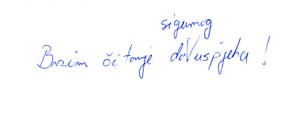 sigurnog
Brzim čitanje do uspjeha!